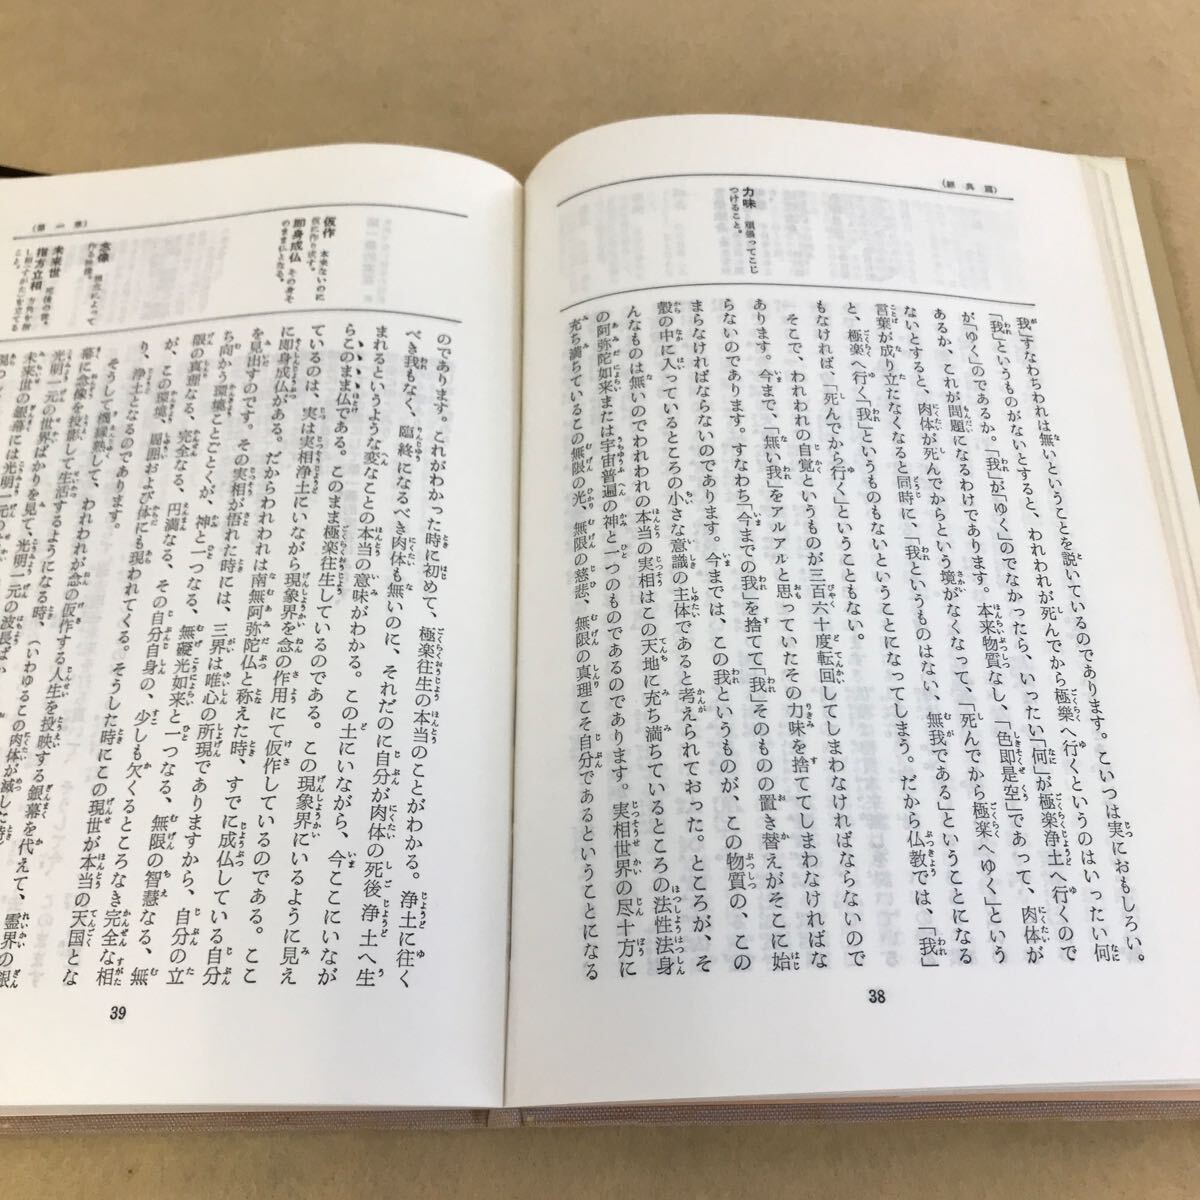 (経典篇)
力味 頑張ってこじ
つけること。
我すなわちわれは無いということを説いているのであります。こいつは実におもしろい。
「我」というものがないとすると、われわれが死んでから極楽へ行くというのはいったい何
が「ゆく」のであるか。「我」が「ゆく」のでなかったら、いったい「何」が極楽浄土へ行くので
あるか、これが問題になるわけであります。本来物質なし、「色即是空」であって、肉体が
ないとすると、肉体が死んでからという境がなくなって、「死んでから極楽へゆく」という
言葉が成り立たなくなると同時に、「我というものはない、無我である」ということになる
と、極楽へ行く「我」というものもないということになってしまう。だから仏教では、「我」
もなければ、「死んでから行く」ということもない。
そこで、われわれの自覚というものが三百六十度転回してしまわなければならないので
あります。今まで、「無い我」をアルアルと思っていたその力味を捨ててしまわなければな
らないのであります。すなわち「今までの我」を捨てて「我」そのものの置き替えがそこに始
まらなければならないのであります。今までは、この我というものが、この物質の、この
殻の中に入っているところの小さな意識の主体であると考えられておった。ところが、そ
んなものは無いのでわれわれの本当の実相はこの天地に充ち満ちているところの法性法身
の阿弥陀如来または宇宙普遍の神と一つのものであるのであります。実相世界の尽十方に
充ち満ちているこの無限の光、無限の慈悲、無限の真理こそ自分であるということになる
38
(第一章)
仮作 本来ないのに
仮に作り成す。
即身成仏 その身そ
のまま仏となる。
念像 想念によって
作る映像。
未来世 死後の世。
指方立相 方角を指
し相(すがた)を立てる
こと。
のであります。これがわかった時に初めて、極楽往生の本当のことがわかる。浄土に往く
べき我もなく、臨終になるべき肉体も無いのに、それだのに自分が肉体の死後浄土へ生
まれるというような変なことの本当の意味がわかる。この土にいながら、今ここにいなが
らこのまま仏である。このまま極楽往生しているのである。この現象界にいるように見え
ているのは、実は実相浄土にいながら現象界を念の作用にて仮作しているのである。ここ
に即身成仏がある。だからわれわれは南無阿弥陀仏と称えた時、すでに成仏している自分
を見出すのです。その実相が悟れた時には、三界は唯心の所現でありますから、自分の立
ち向かう環境ことごとくが、神と一つなる、無礙光如来と一つなる、無限の智慧なる、無
限の真理なる、完全なる、円満なる、その自分自身の、少しも欠くるところなき完全な相
が、この環境、周囲および身体にも現われてくる。そうした時にこの現世が本当の天国とな
り、浄土となるのであります。
そうして機縁熟して、われわれが念の仮作する人生を投映する銀幕を代えて、霊界の銀
幕に念像を投影して生活するようになる時、(いわゆるこの肉体が滅した時)
光明一元の世界ばかりを見て、光明一元の波長ばか
未来世の銀幕には光明一元の
39